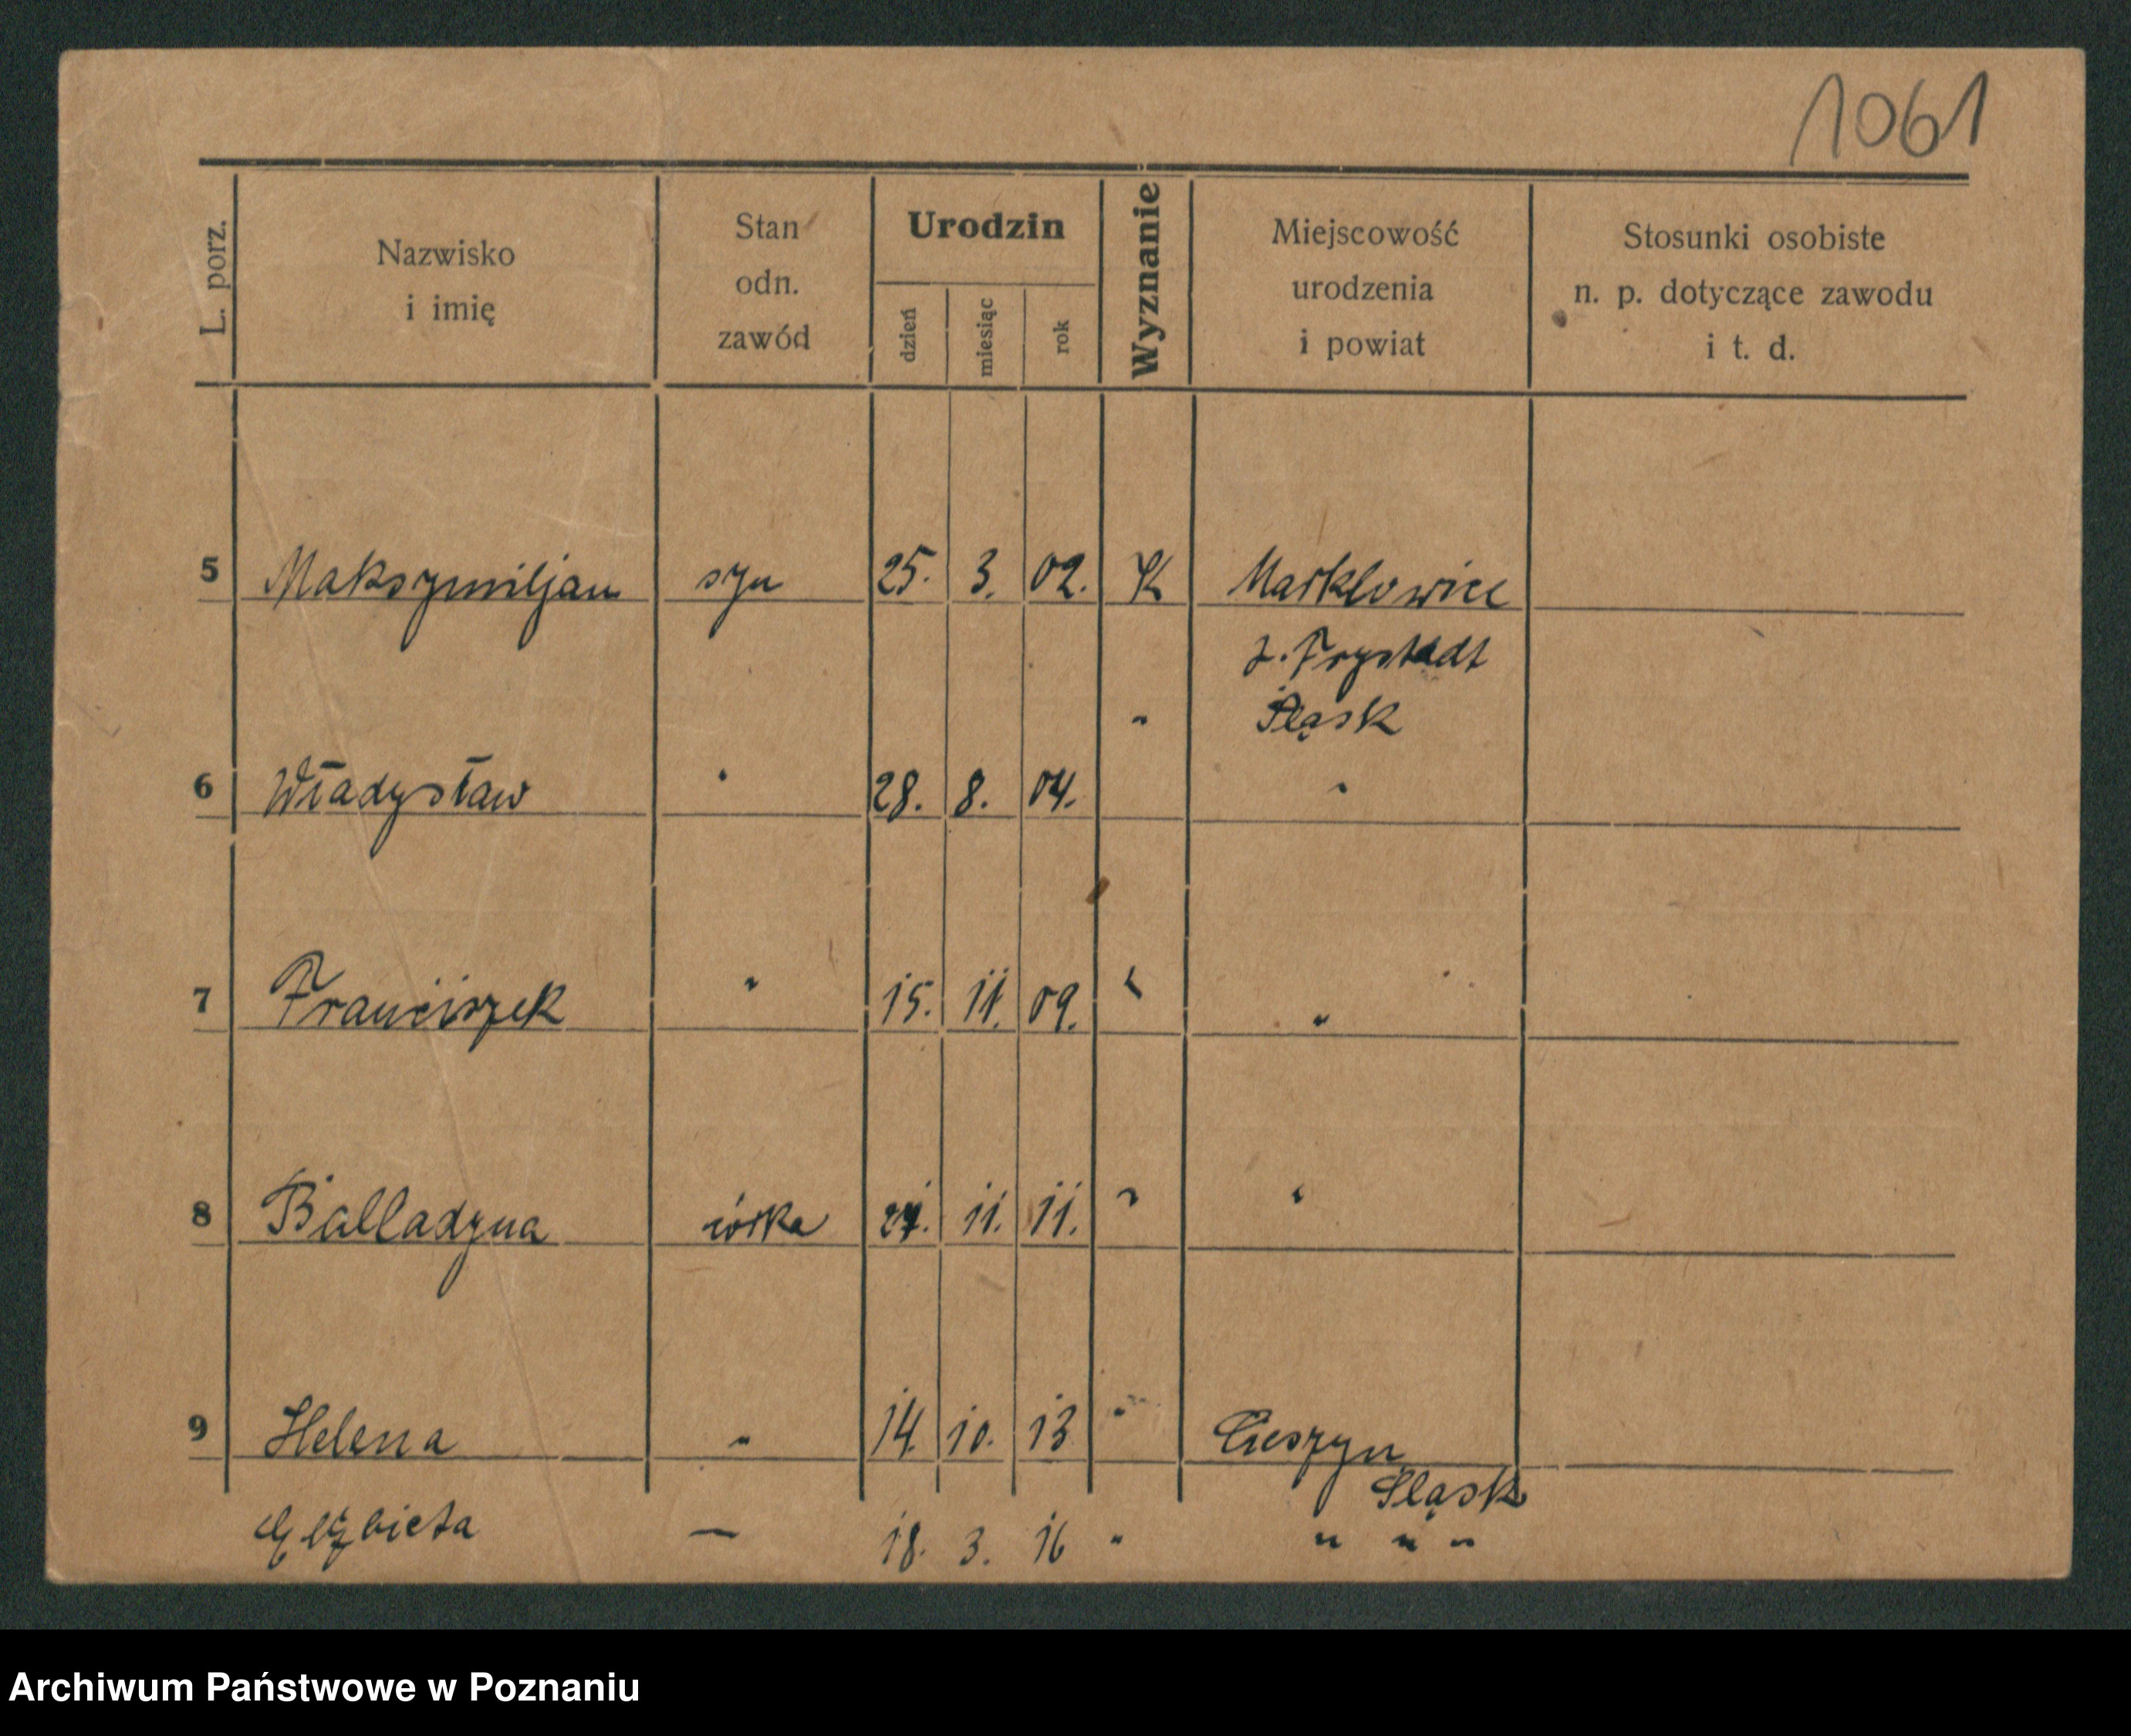 1061
L. porz.
Nazwisko
i imię
Stan
odn.
zawód
Urodzin
dzień
miesiąc
rok
Wyznanie
Miejscowość
urodzenia
i powiat
Stosunki osobiste
n. p. dotyczące zawodu
i t. d.
5 Maksymiljan syn 25. 3. 02. K Marklowice
p. Frystadt
Śląsk
6 Władysław " 28. 8. 04. " "
7 Franciszek " 15. 11. 09. " "
8 Balladyna córka 11. 11. " "
9 Helena " 14. 10. 13 " Cieszyn
Śląsk
Elżbieta — 18. 3. 16 " " " "
Archiwum Państwowe w Poznaniu